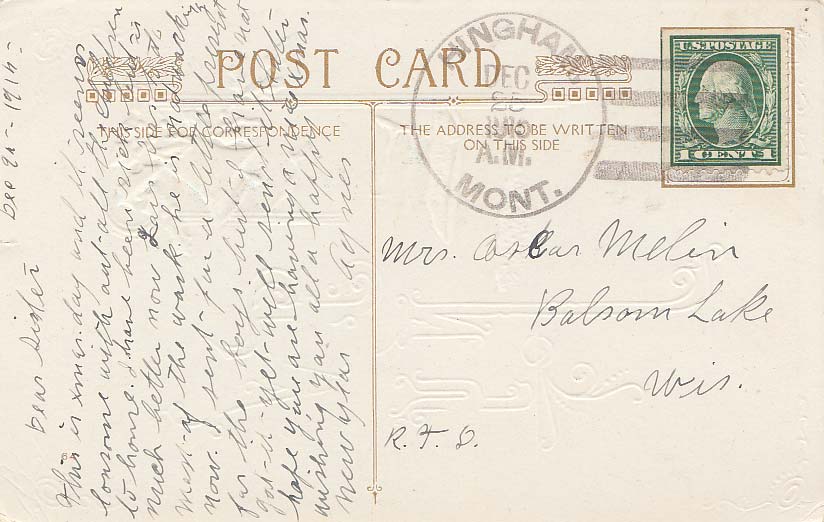 POST CARD
THIS SIDE FOR CORRESPONDENCE
THE ADDRESS TO BE WRITTEN
ON THIS SIDE
WINGHAM
DEC
A.M.
MONT.
U.S. POSTAGE
1 CENT 1
Mrs. Oscar Melin
Balsom Lake
Wis.
R. F. D.
Dec 25 - 191
Dear Sister
This is xmas day and it seems
lonsome with out all the children
to home. I have been sick but is
much better now Lars is
most of the work he is
now. I sent for a little present
for the boys but I that
got it yet will send it later
hope you are having a merry xmas.
wishing you all a happy
new year Agnes